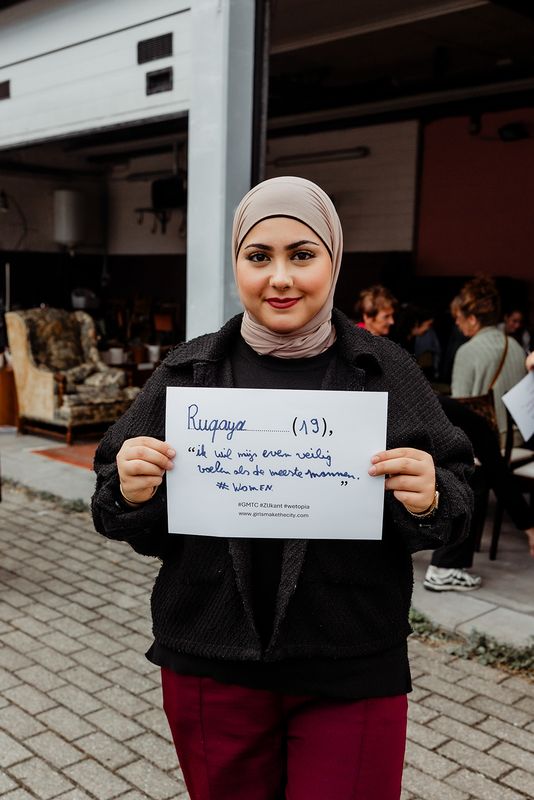 Ruqaya (19),
"ik wil mijn even veilig
voelen als de meeste mannen.
# WOMEN "
#GMTC #ZIJkant #wetopia
www.girlsmakethecity.com